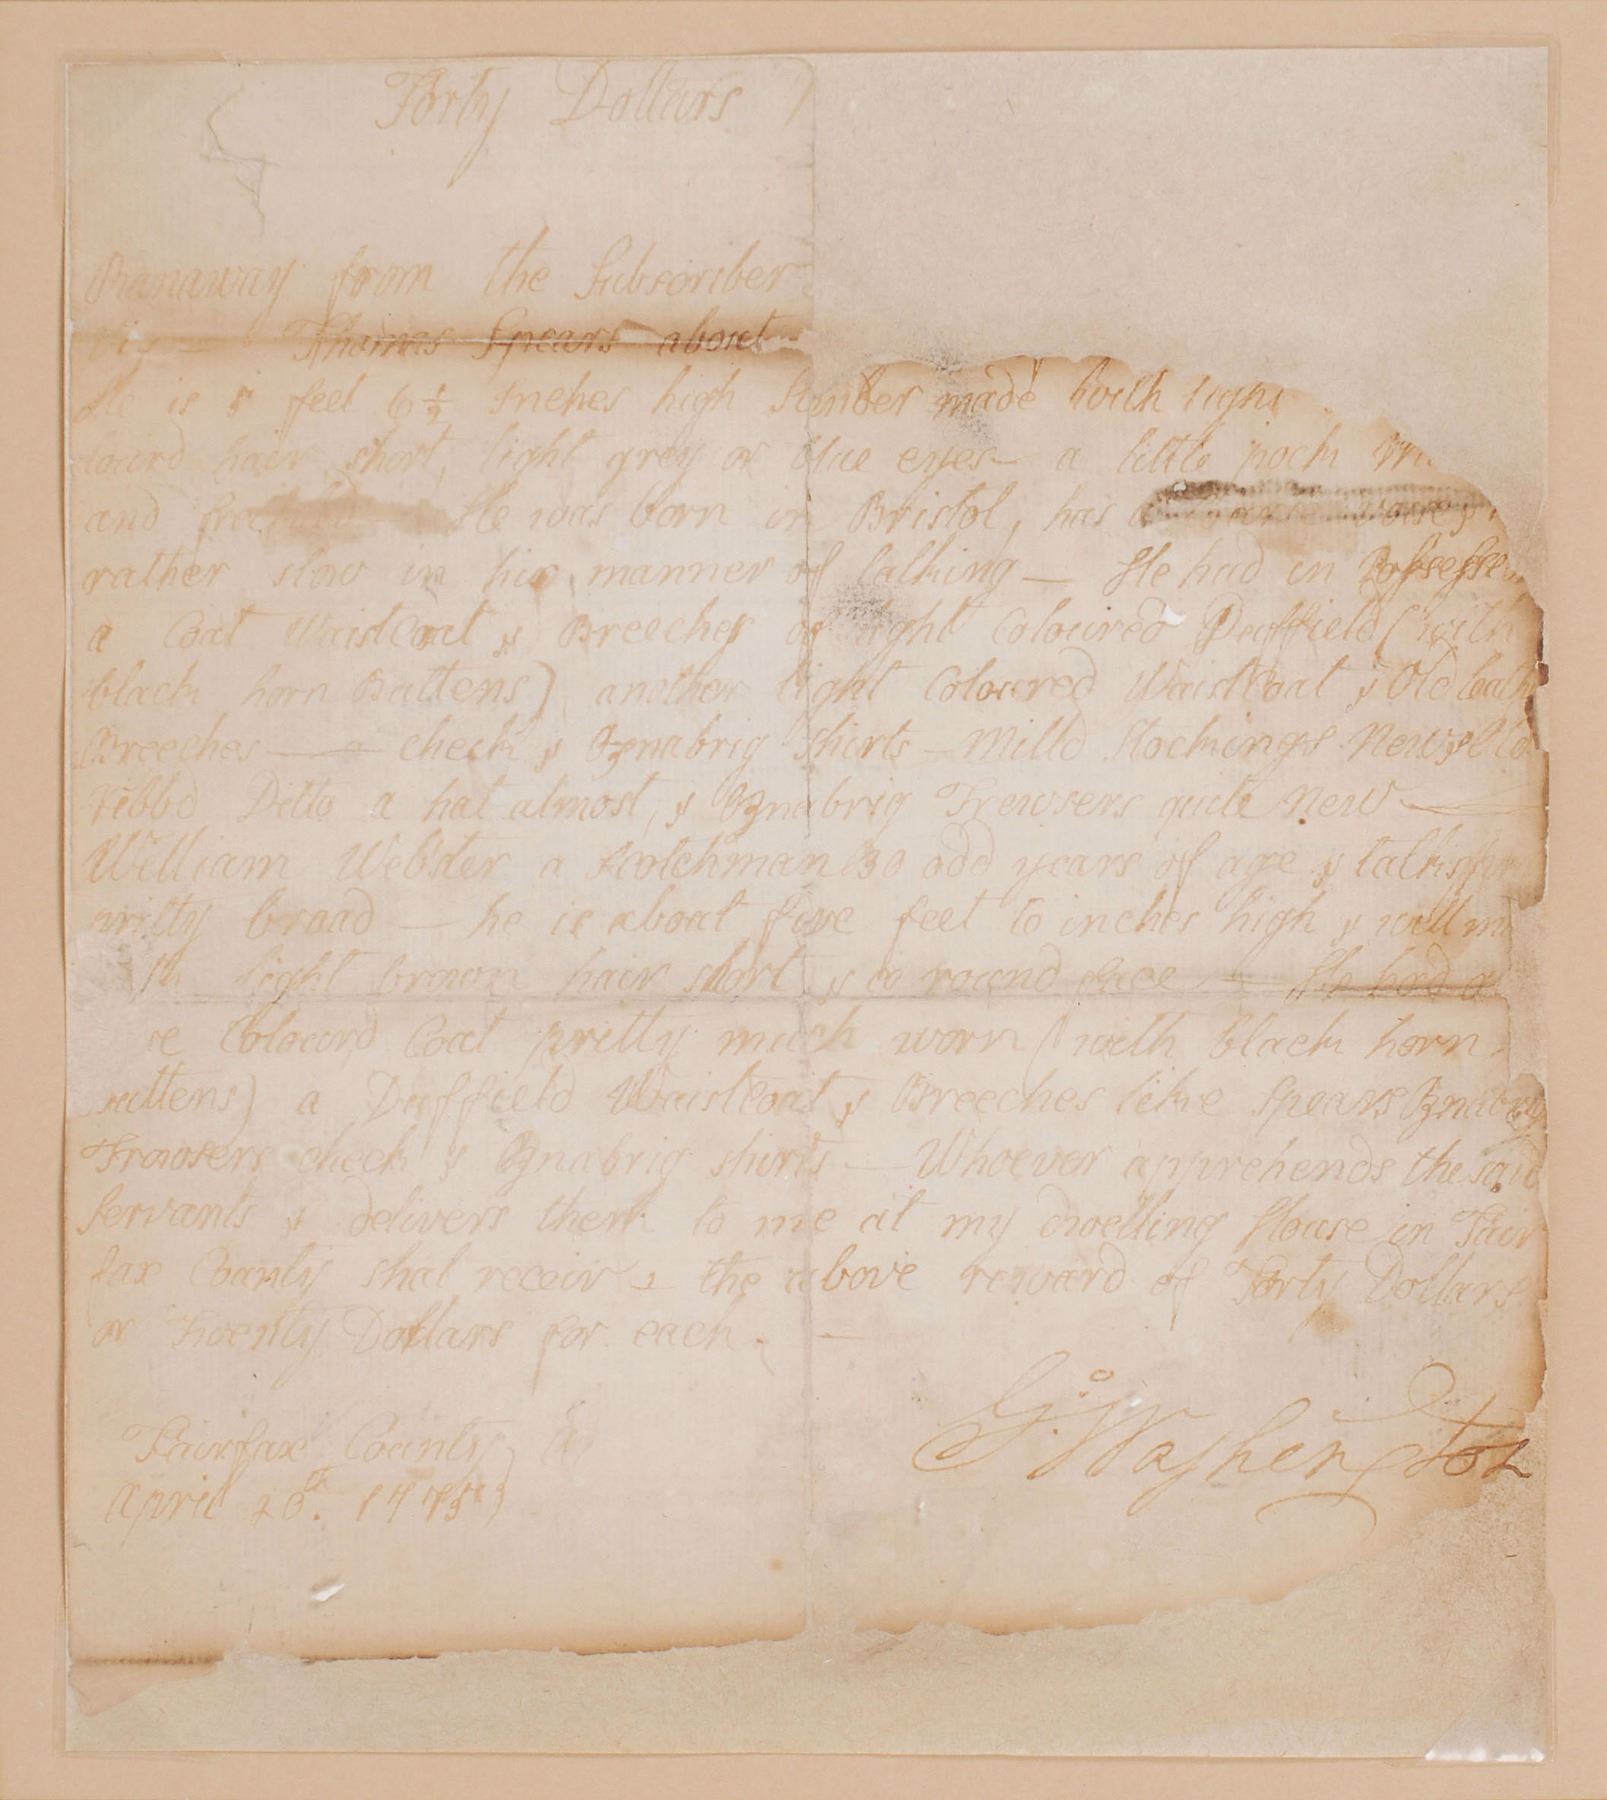 Forty Dollars
Ranaway from the Subscriber
Viz — Thomas Spears about
He is 5 feet 6 1/2 Inches high Slender made with light
lourd hair short, light grey or blue eyes — a little pock
and He was born in Bristol, has a Coarse voice &
rather slow in his manner of talking — He had in Possession
a Coat Waistcoat & Breeches of light Coloured Duffield (with
black horn Buttens) another light Coloured Waistcoat & Old
Breeches — check & Oznabrig shirts — Milld Stockings New & Old
ribbd Ditto a hat almost, & Oznabrig Trowsers quite New
William Webster a Scotchman 30 odd years of age & talks
pritty broad — he is about five feet 6 inches high & well
light brown hair short & a round face — He had a
Colourd Coat pritty much worn (with black horn
uttens) a Duffield Waistcoat & Breeches like Spears Oznabrig
Trowsers check & Oznabrig shirts — Whoever apprehends the said
Servants & delivers them to me at my dwelling House in Fair
fax County shal receive the above reward of Forty Dollars
or Twenty Dollars for each. —
G:o Washington
Fairfax County
April 20th. 1775